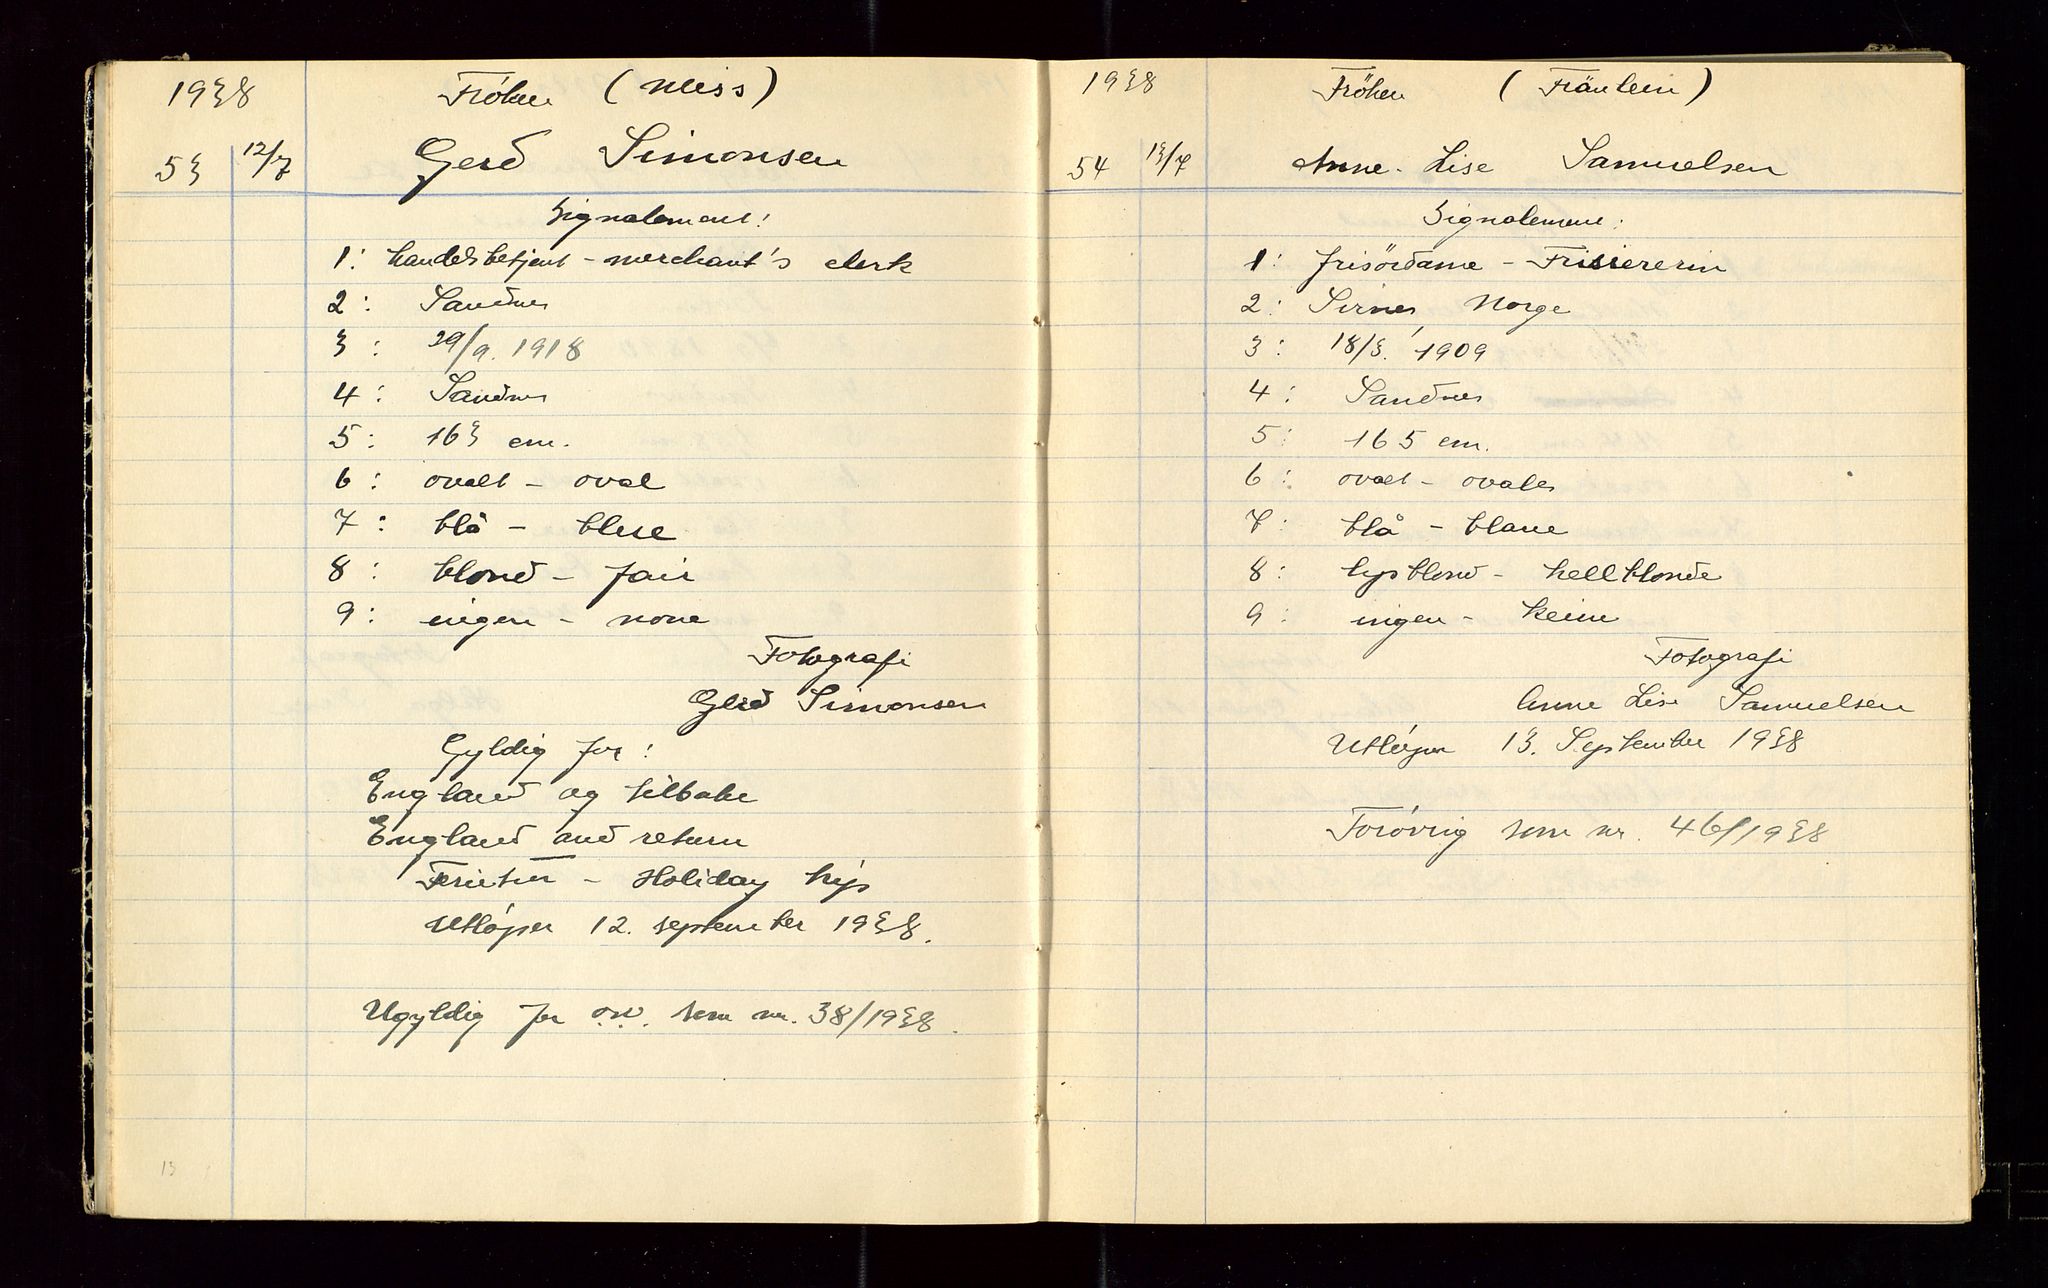 1938 Fröken (Miss)
53 12/7 Gerd Simonsen
Signalement:
1: handelsbetjent - merchant's clerk
2: Sandnes
3: 29/9. 1918
4: Sandnes
5: 163 cm.
6: ovalt - oval
7: blå - blue
8: blond - fair
9: ingen - none
Fotografi
Gerd Simonsen
Gyldig for:
England og tilbake
England and return
Ferietur - Holiday trip
Utløper 12. september 1938.
Ugyldig for o.s.v. som nr. 38/1938.
13
1938 Fröken (Fräulein)
54 13/7 Anne-Lise Samuelsen
Signalement:
1: frisördame - Frisiererin
2: Sirnes Norge
3: 18/3. 1909
4: Sandnes
5: 165 cm.
6: ovalt - ovales
7: blå - blaue
8: lysblond - hellblonde
9: ingen - keine
Fotografi
Anne Lise Samuelsen
Utløper 13. September 1938
Forøvrig som nr. 46/1938